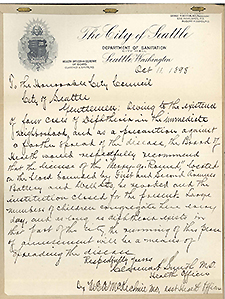 The City of Seattle
DEPARTMENT OF SANITATION
Seattle, Washington
Oct 11 1898
To the Honorable City Council
City of Seattle
Gentlemen: Owing to the existence
of four cases of Diphtheria in the immediate
neighborhood, and as a precaution against
a further spread of the disease, the Board of
Health would respectfully recommend
that the license of the Merry-go-Round, located
on the block bounded by First and Second Avenues
Battery and Wall Sts, be revoked and the
institution closed for the present. Large
numbers of children congregate there every
day, and as long as diphtheria exists in
that part of the City the running of this piece
of amusement will be a means of
spreading the disease.
Respectfully yours
Smith M.D.
Health Officer
by
Health Officer